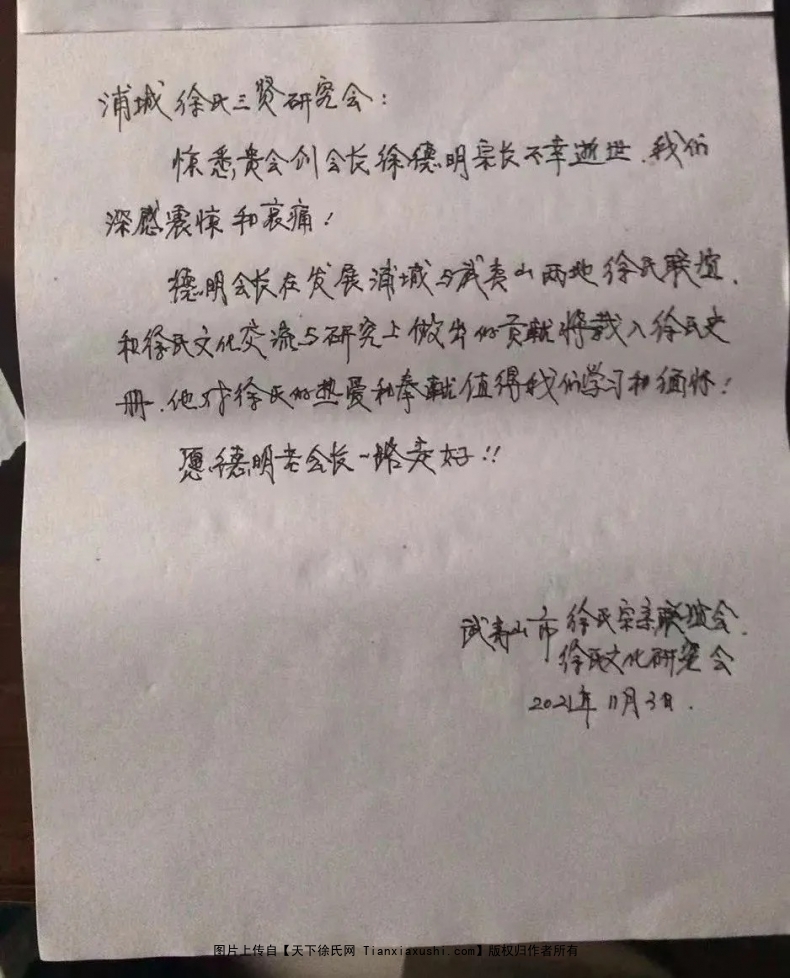 浦城徐氏三贤研究会：
惊悉贵会创会长徐德明宗长不幸逝世.我们
深感震惊和哀痛！
德明会长在发展浦城与武夷山两地徐氏联谊.
和徐氏文化交流与研究上做出的贡献将载入徐氏史
册.他对徐氏的热爱和奉献值得我们学习和缅怀！
愿德明老会长一路走好!!
武夷山市徐氏宗亲联谊会.
徐氏文化研究会
2021年11月3日.
图片上传自【天下徐氏网 Tianxiaxushi.com】版权归作者所有